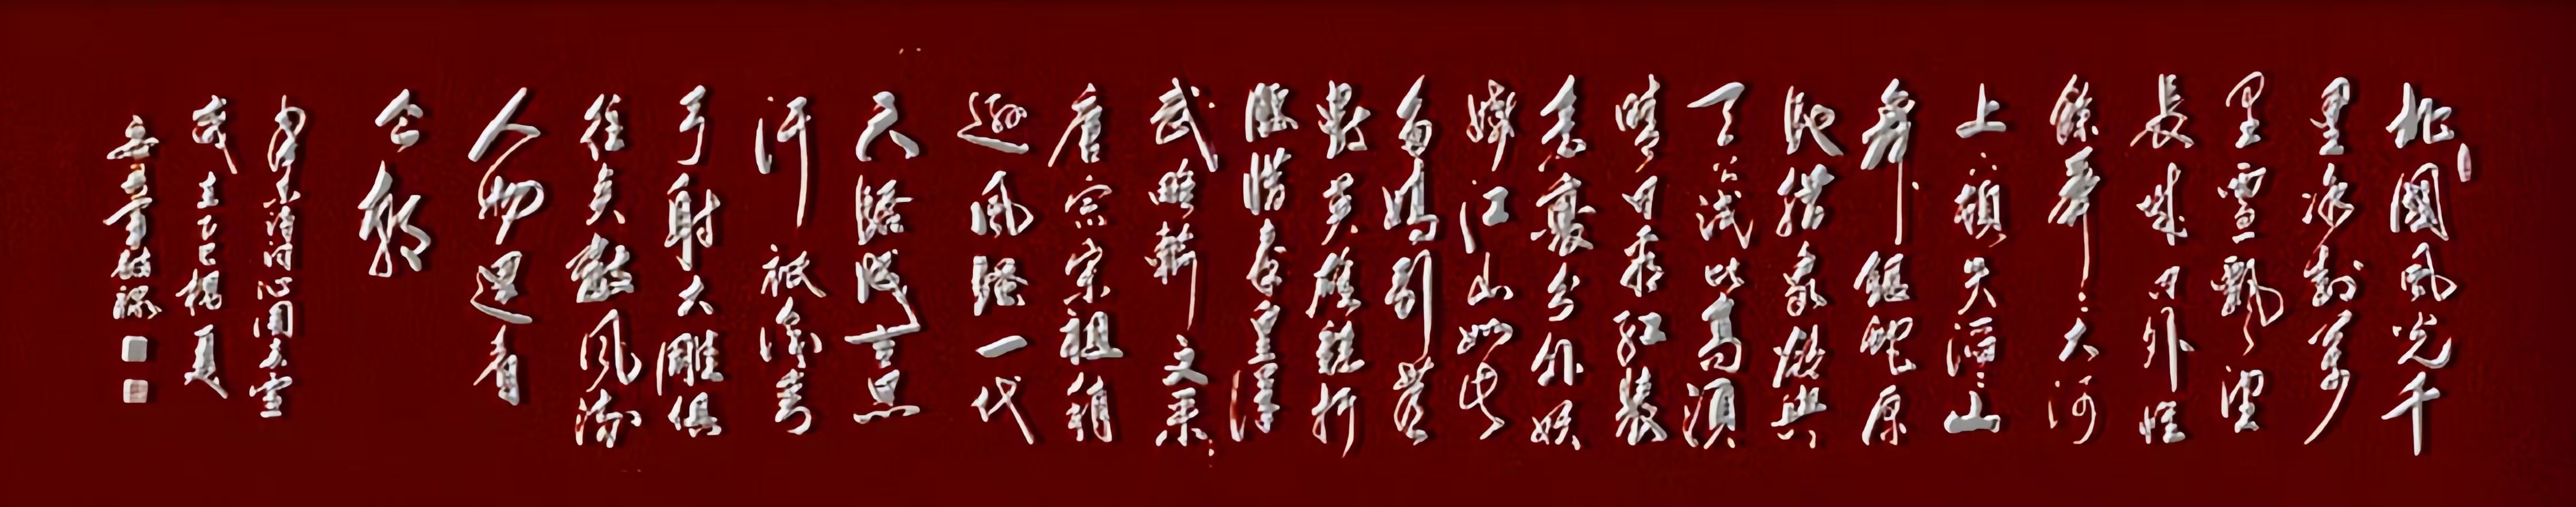 北國風光千
里冰封萬
里雪飄望
長城内外惟
餘莽莽大河
上下頓失滔滔山
舞銀蛇原
馳蜡象欲與
天公試比高須
晴日看紅裝
素裹分外妖
嬈江山如此
多嬌引無
數英雄競折
腰惜秦皇漢
武略輸文采
唐宗宋祖稍
遜風騷一代
天驕成吉思
汗祇識彎
弓射大雕俱
往矣數風流
人物還看
今朝
毛澤东詩詞沁園春雪
歲在乙巳楊夏